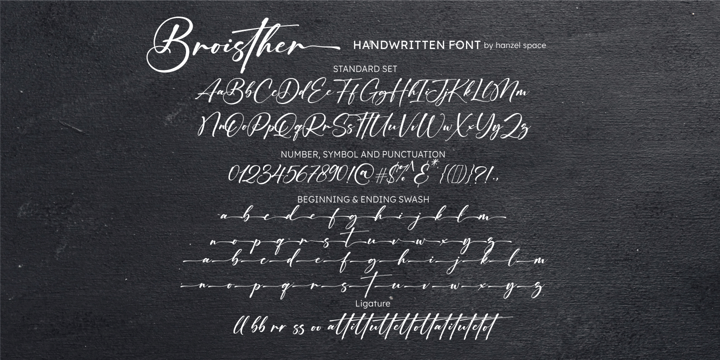 Broisther HANDWRITTEN FONT by hanzel space
STANDARD SET
AaBbCcDdEeFfGgHhIiJjKkLlMm
NnOoPpQqRrSsTtUuVvWwXxYyZz
NUMBER, SYMBOL AND PUNCTUATION
012345678901@#$%^&*{(|)}?!.,
BEGINNING & ENDING SWASH
a b c d e f g h i j k l m
n o p q r s t u v w x y z
a b c d e f g h i j k l m
n o p q r s t u v w x y z
Ligature
ll bb rr ss oo